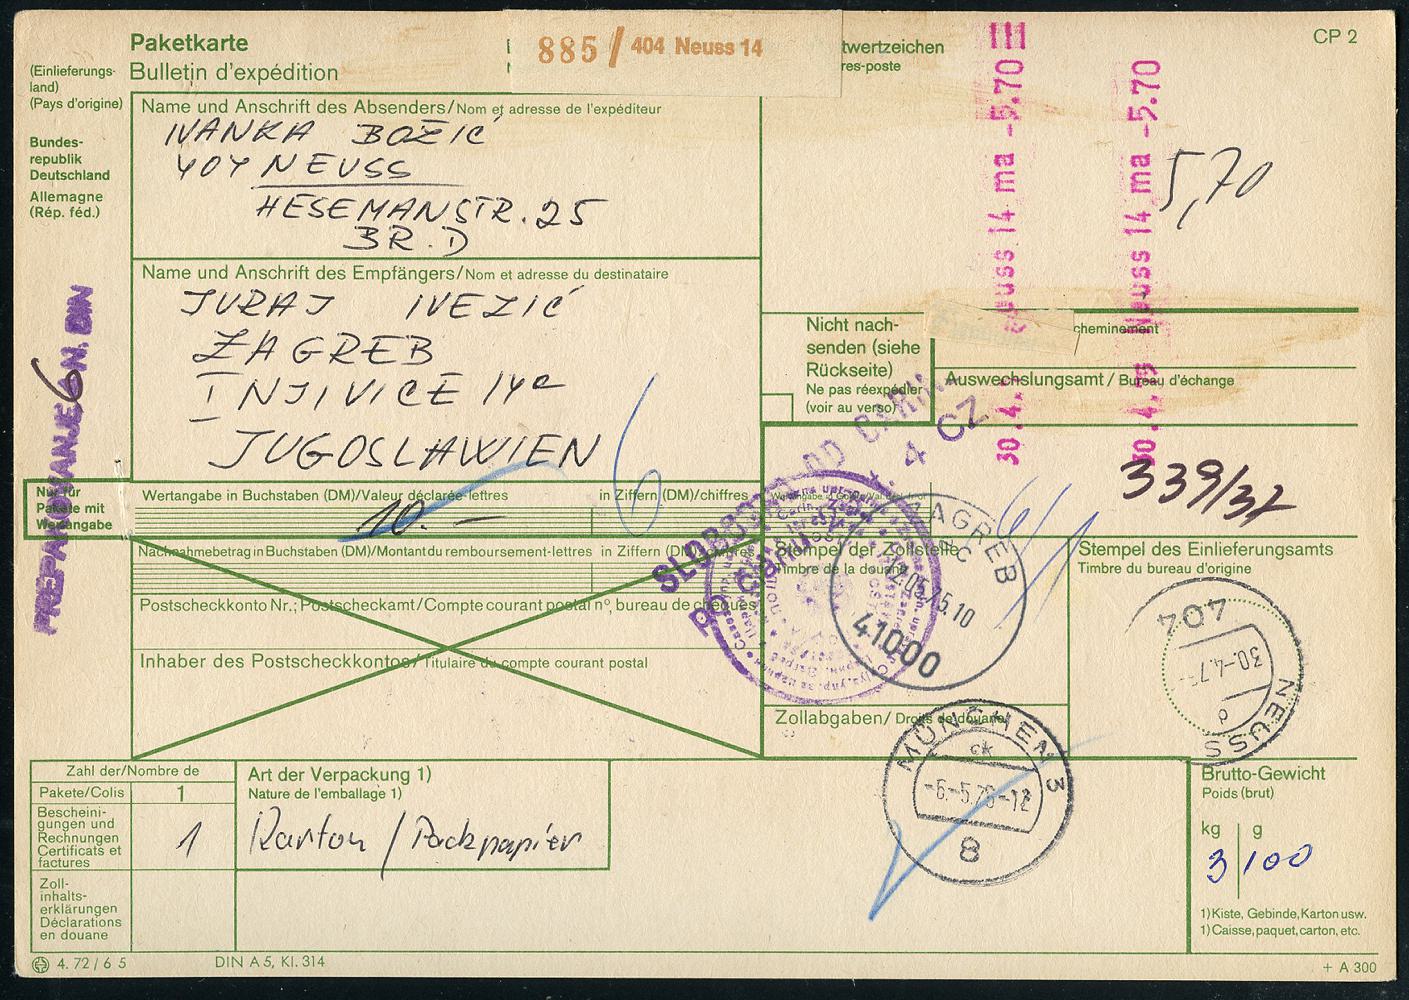 Paketkarte
Bulletin d'expédition
885 / 404 Neuss 14
twertzeichen
res-poste
CP 2
(Einlieferungs-
land)
(Pays d'origine)
Bundes-
republik
Deutschland
Allemagne
(Rép. féd.)
Name und Anschrift des Absenders/Nom et adresse de l'expéditeur
IVANKA BOŽIĆ
404 NEUSS
HESEMANSTR. 25
BR.D
Name und Anschrift des Empfängers/Nom et adresse du destinataire
JURAJ IVEZIĆ
ZAGREB
INJIVICE 14a
JUGOSLAWIEN
30.4.75 Neuss 14 ma -5.70
30.4.75 Neuss 14 ma -5.70
5,70
Nicht nach-
senden (siehe
Rückseite)
Ne pas réexpédier
(voir au verso)
cheminement
Auswechslungsamt / Bureau d'échange
339/37
PREPAKOVANJE 6 N. DIN
Nur für
Pakete mit
Wertangabe
Wertangabe in Buchstaben (DM)/Valeur déclarée-lettres
in Ziffern (DM)/chiffres
10.—
6
Nachnahmebetrag in Buchstaben (DM)/Montant du remboursement-lettres
in Ziffern (DM)/chiffres
Postscheckkonto Nr.; Postscheckamt/Compte courant postal n°, bureau de chèques
Inhaber des Postscheckkontos/Titulaire du compte courant postal
SLOBODNO OD CARINE
po 4 CZ
Stempel der Zollstelle
Timbre de la douane
ZAGREB
12.05.75.10
41000
Zollabgaben/Droits de douane
Stempel des Einlieferungsamts
Timbre du bureau d'origine
404
30.-4.75
NEUSS
MÜNCHEN 3
ck
-6.-5.75-12
8
Zahl der/Nombre de
Pakete/Colis
1
Bescheini-
gungen und
Rechnungen
Certificats et
factures
1
Zoll-
inhalts-
erklärungen
Déclarations
en douane
Art der Verpackung 1)
Nature de l'emballage 1)
Karton / Packpapier
Brutto-Gewicht
Poids (brut)
kg g
3 100
1) Kiste, Gebinde, Karton usw.
1) Caisse, paquet, carton, etc.
4. 72 / 6 5
DIN A 5, Kl. 314
+ A 300